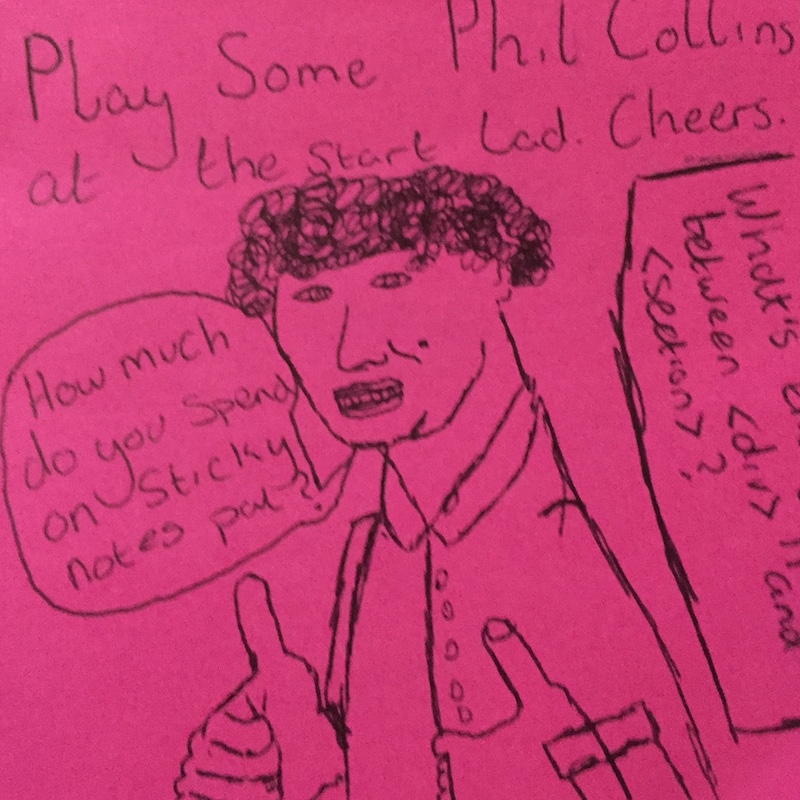 Play Some Phil Collins
at the Start Lad. Cheers.
How much
do you Spend
on Sticky
notes pal?
What's
between <div> and
<section>?